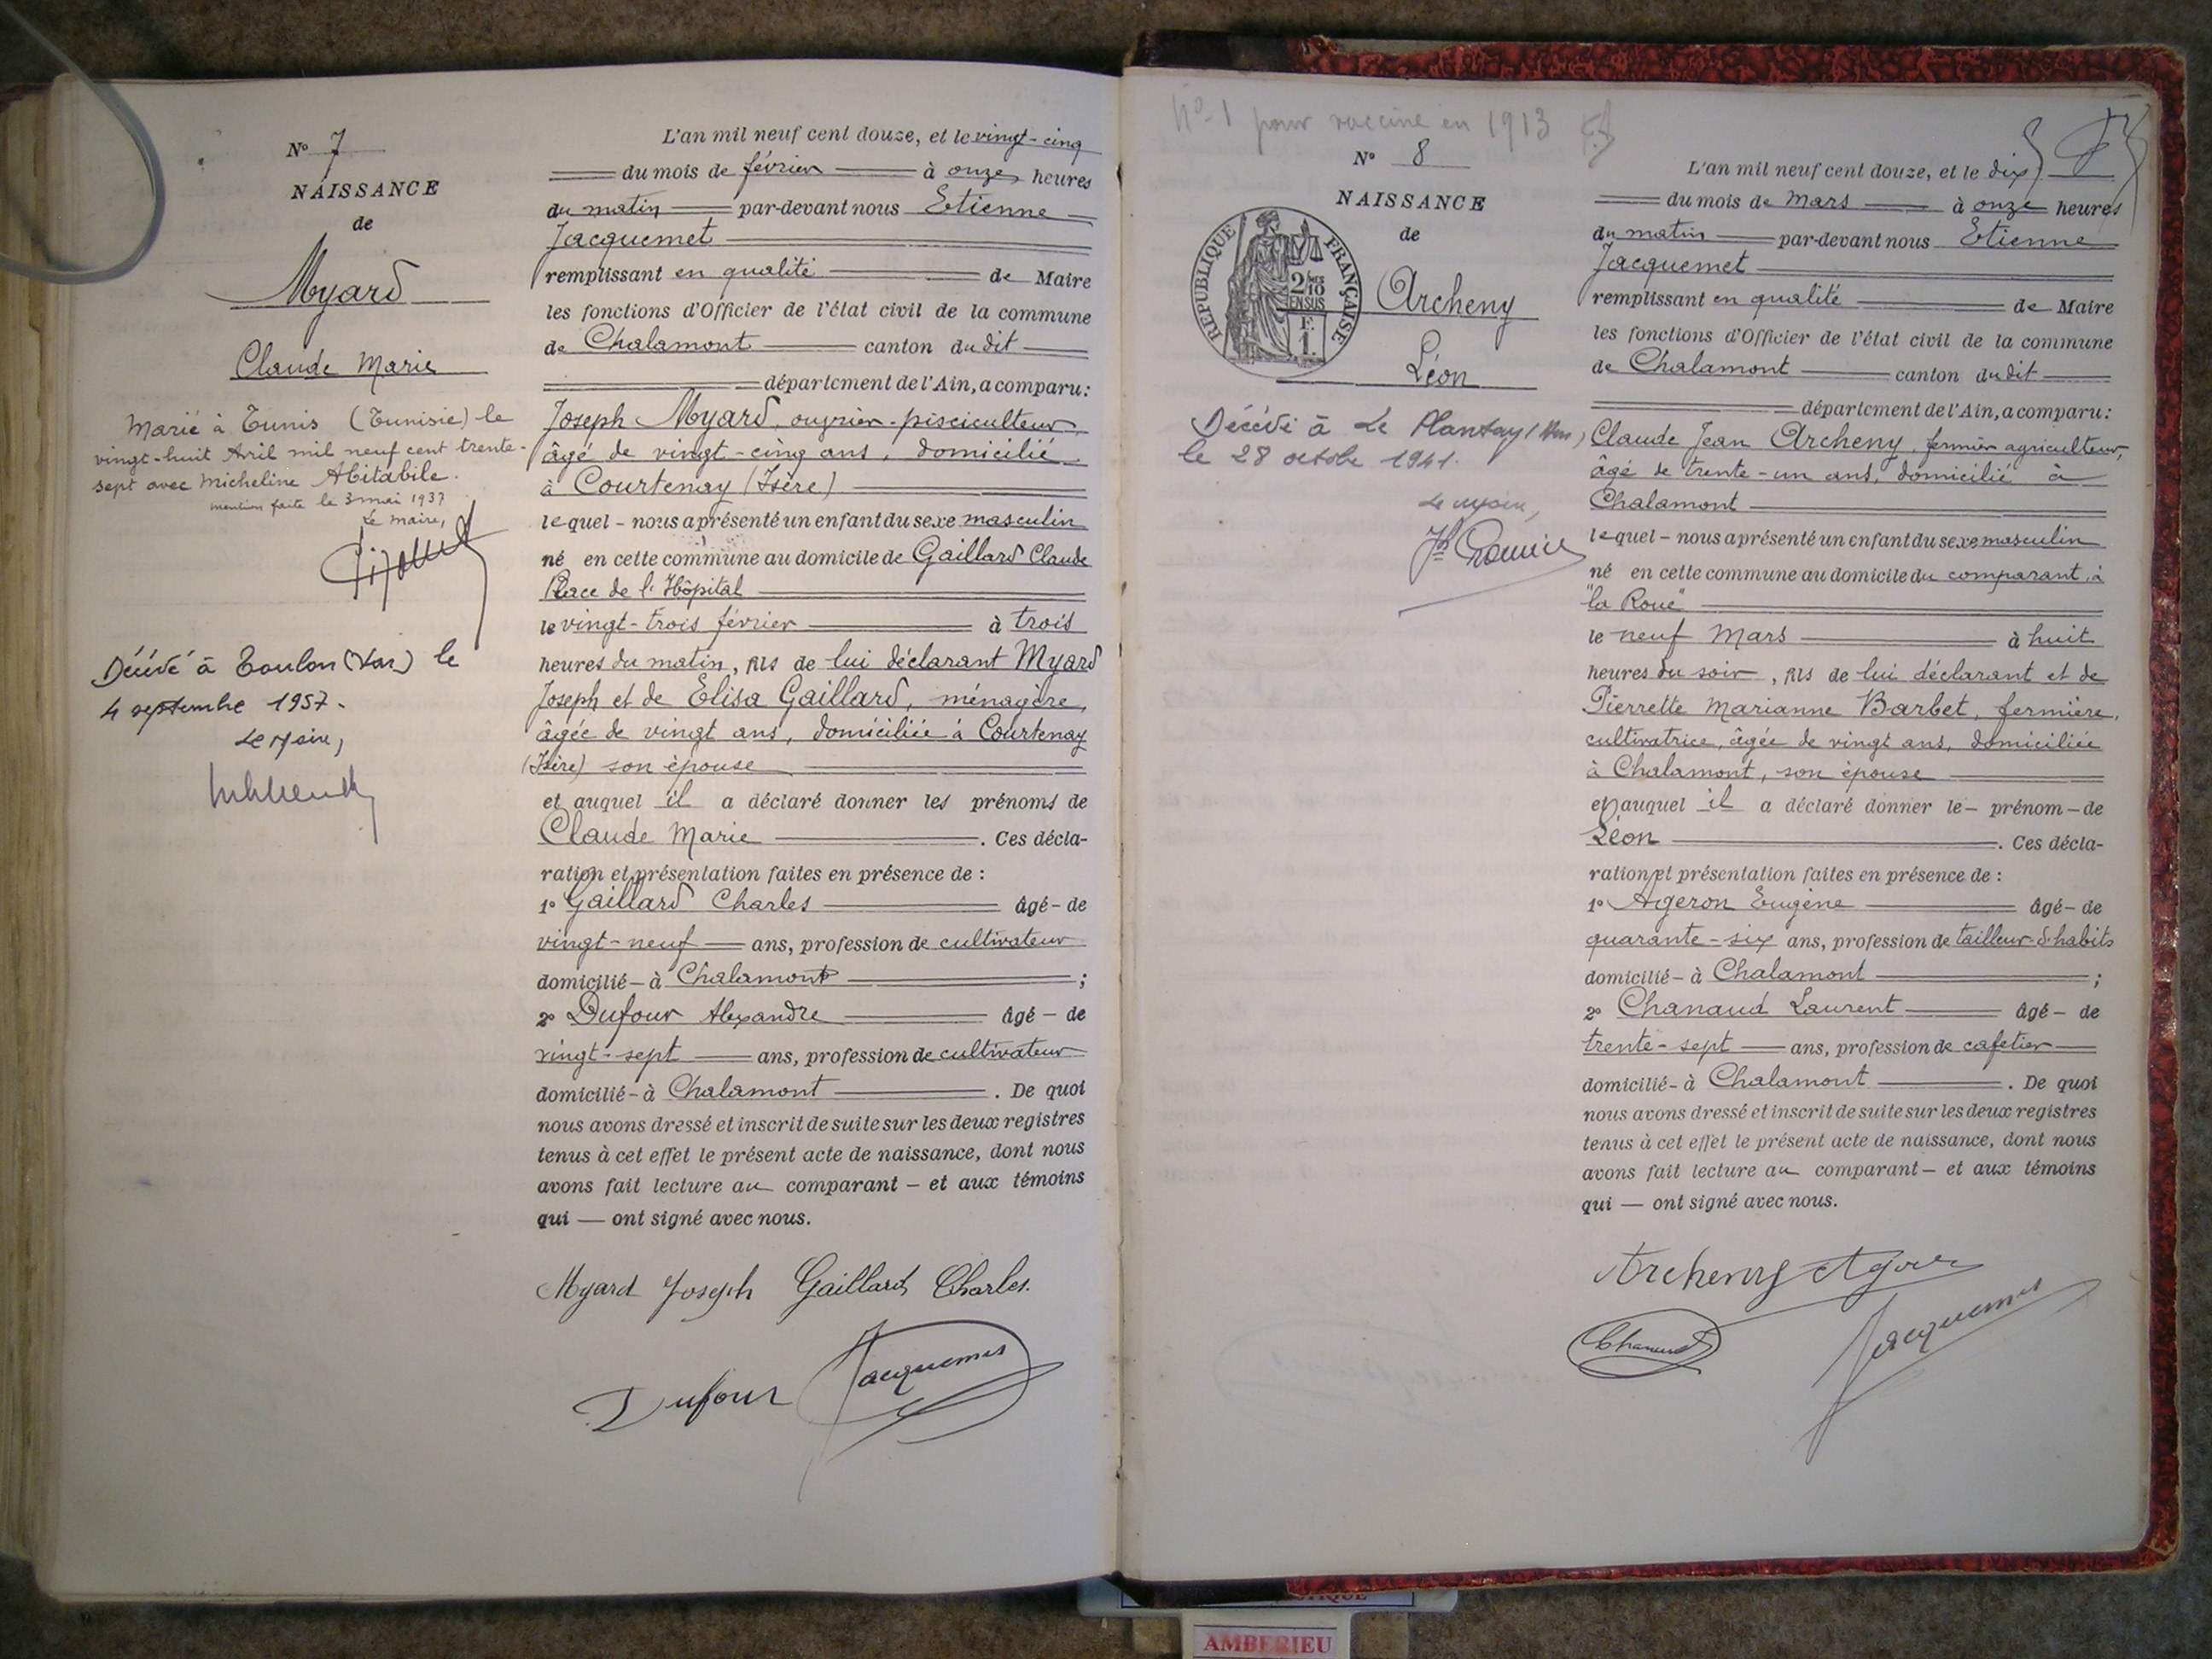 N° 7
NAISSANCE
de
Myard
Claude Marie
Marié à Tunis (Tunisie) le
vingt-huit Avril mil neuf cent trente-
sept avec Micheline Abitabile.
mention faite le 3 mai 1937
Le maire,
Décédé à Toulon (Var) le
4 septembre 1957.
Le Maire,
L'an mil neuf cent douze, et le vingt-cinq
du mois de février à onze heures
du matin par-devant nous Etienne
Jacquemet
remplissant en qualité de Maire
les fonctions d'Officier de l'état civil de la commune
de Chalamont canton dudit
département de l'Ain, a comparu:
Joseph Myard, ouvrier-pisciculteur,
âgé de vingt-cinq ans, domicilié
à Courtenay (Isère)
lequel - nous a présenté un enfant du sexe masculin
né en cette commune au domicile de Gaillard Claude
Place de l'Hôpital
le vingt-trois février à trois
heures du matin, fils de lui déclarant Myard
Joseph et de Elisa Gaillard, ménagère,
âgée de vingt ans, domiciliée à Courtenay
(Isère) son épouse
et auquel il a déclaré donner les prénoms de
Claude Marie . Ces décla-
ration et présentation faites en présence de :
1° Gaillard Charles âgé - de
vingt-neuf ans, profession de cultivateur
domicilié - à Chalamont ;
2° Dufour Alexandre âgé - de
vingt-sept ans, profession de cultivateur
domicilié - à Chalamont . De quoi
nous avons dressé et inscrit de suite sur les deux registres
tenus à cet effet le présent acte de naissance, dont nous
avons fait lecture au comparant - et aux témoins
qui — ont signé avec nous.
Myard Joseph Gaillard Charles.
Dufour Jacquemet
N°-1 pour vaccine en 1913
N° 8
NAISSANCE
de
REPUBLIQUE FRANÇAISE
2/10
EN SUS
F.
1.
Archeny
Léon
Décédé à Le Plantay (Ain)
le 28 octobre 1941.
Le Maire,
L'an mil neuf cent douze, et le dix
du mois de Mars à onze heures
du matin par-devant nous Etienne
Jacquemet
remplissant en qualité de Maire
les fonctions d'Officier de l'état civil de la commune
de Chalamont canton dudit
département de l'Ain, a comparu:
Claude Jean Archeny, fermier agriculteur,
âgé de trente-un ans, domicilié à
Chalamont
lequel - nous a présenté un enfant du sexe masculin
né en cette commune au domicile du comparant, à
"la Roue"
le neuf Mars à huit
heures du soir, fils de lui déclarant et de
Pierrette Marianne Barbet, fermière,
cultivatrice, âgée de vingt ans, domiciliée
à Chalamont, son épouse
et auquel il a déclaré donner le - prénom - de
Léon . Ces décla-
ration et présentation faites en présence de :
1° Ageron Eugène âgé - de
quarante-six ans, profession de tailleur d'habits
domicilié - à Chalamont ;
2° Chanaud Laurent âgé - de
trente-sept ans, profession de cafetier
domicilié - à Chalamont . De quoi
nous avons dressé et inscrit de suite sur les deux registres
tenus à cet effet le présent acte de naissance, dont nous
avons fait lecture au comparant - et aux témoins
qui — ont signé avec nous.
Archeny Ageron
Chanaud Jacquemet
AMBERIEU